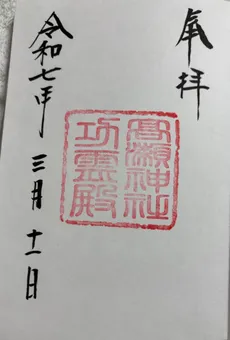 奉拝
高瀬神社
功霊殿
令和七年 三月十一日